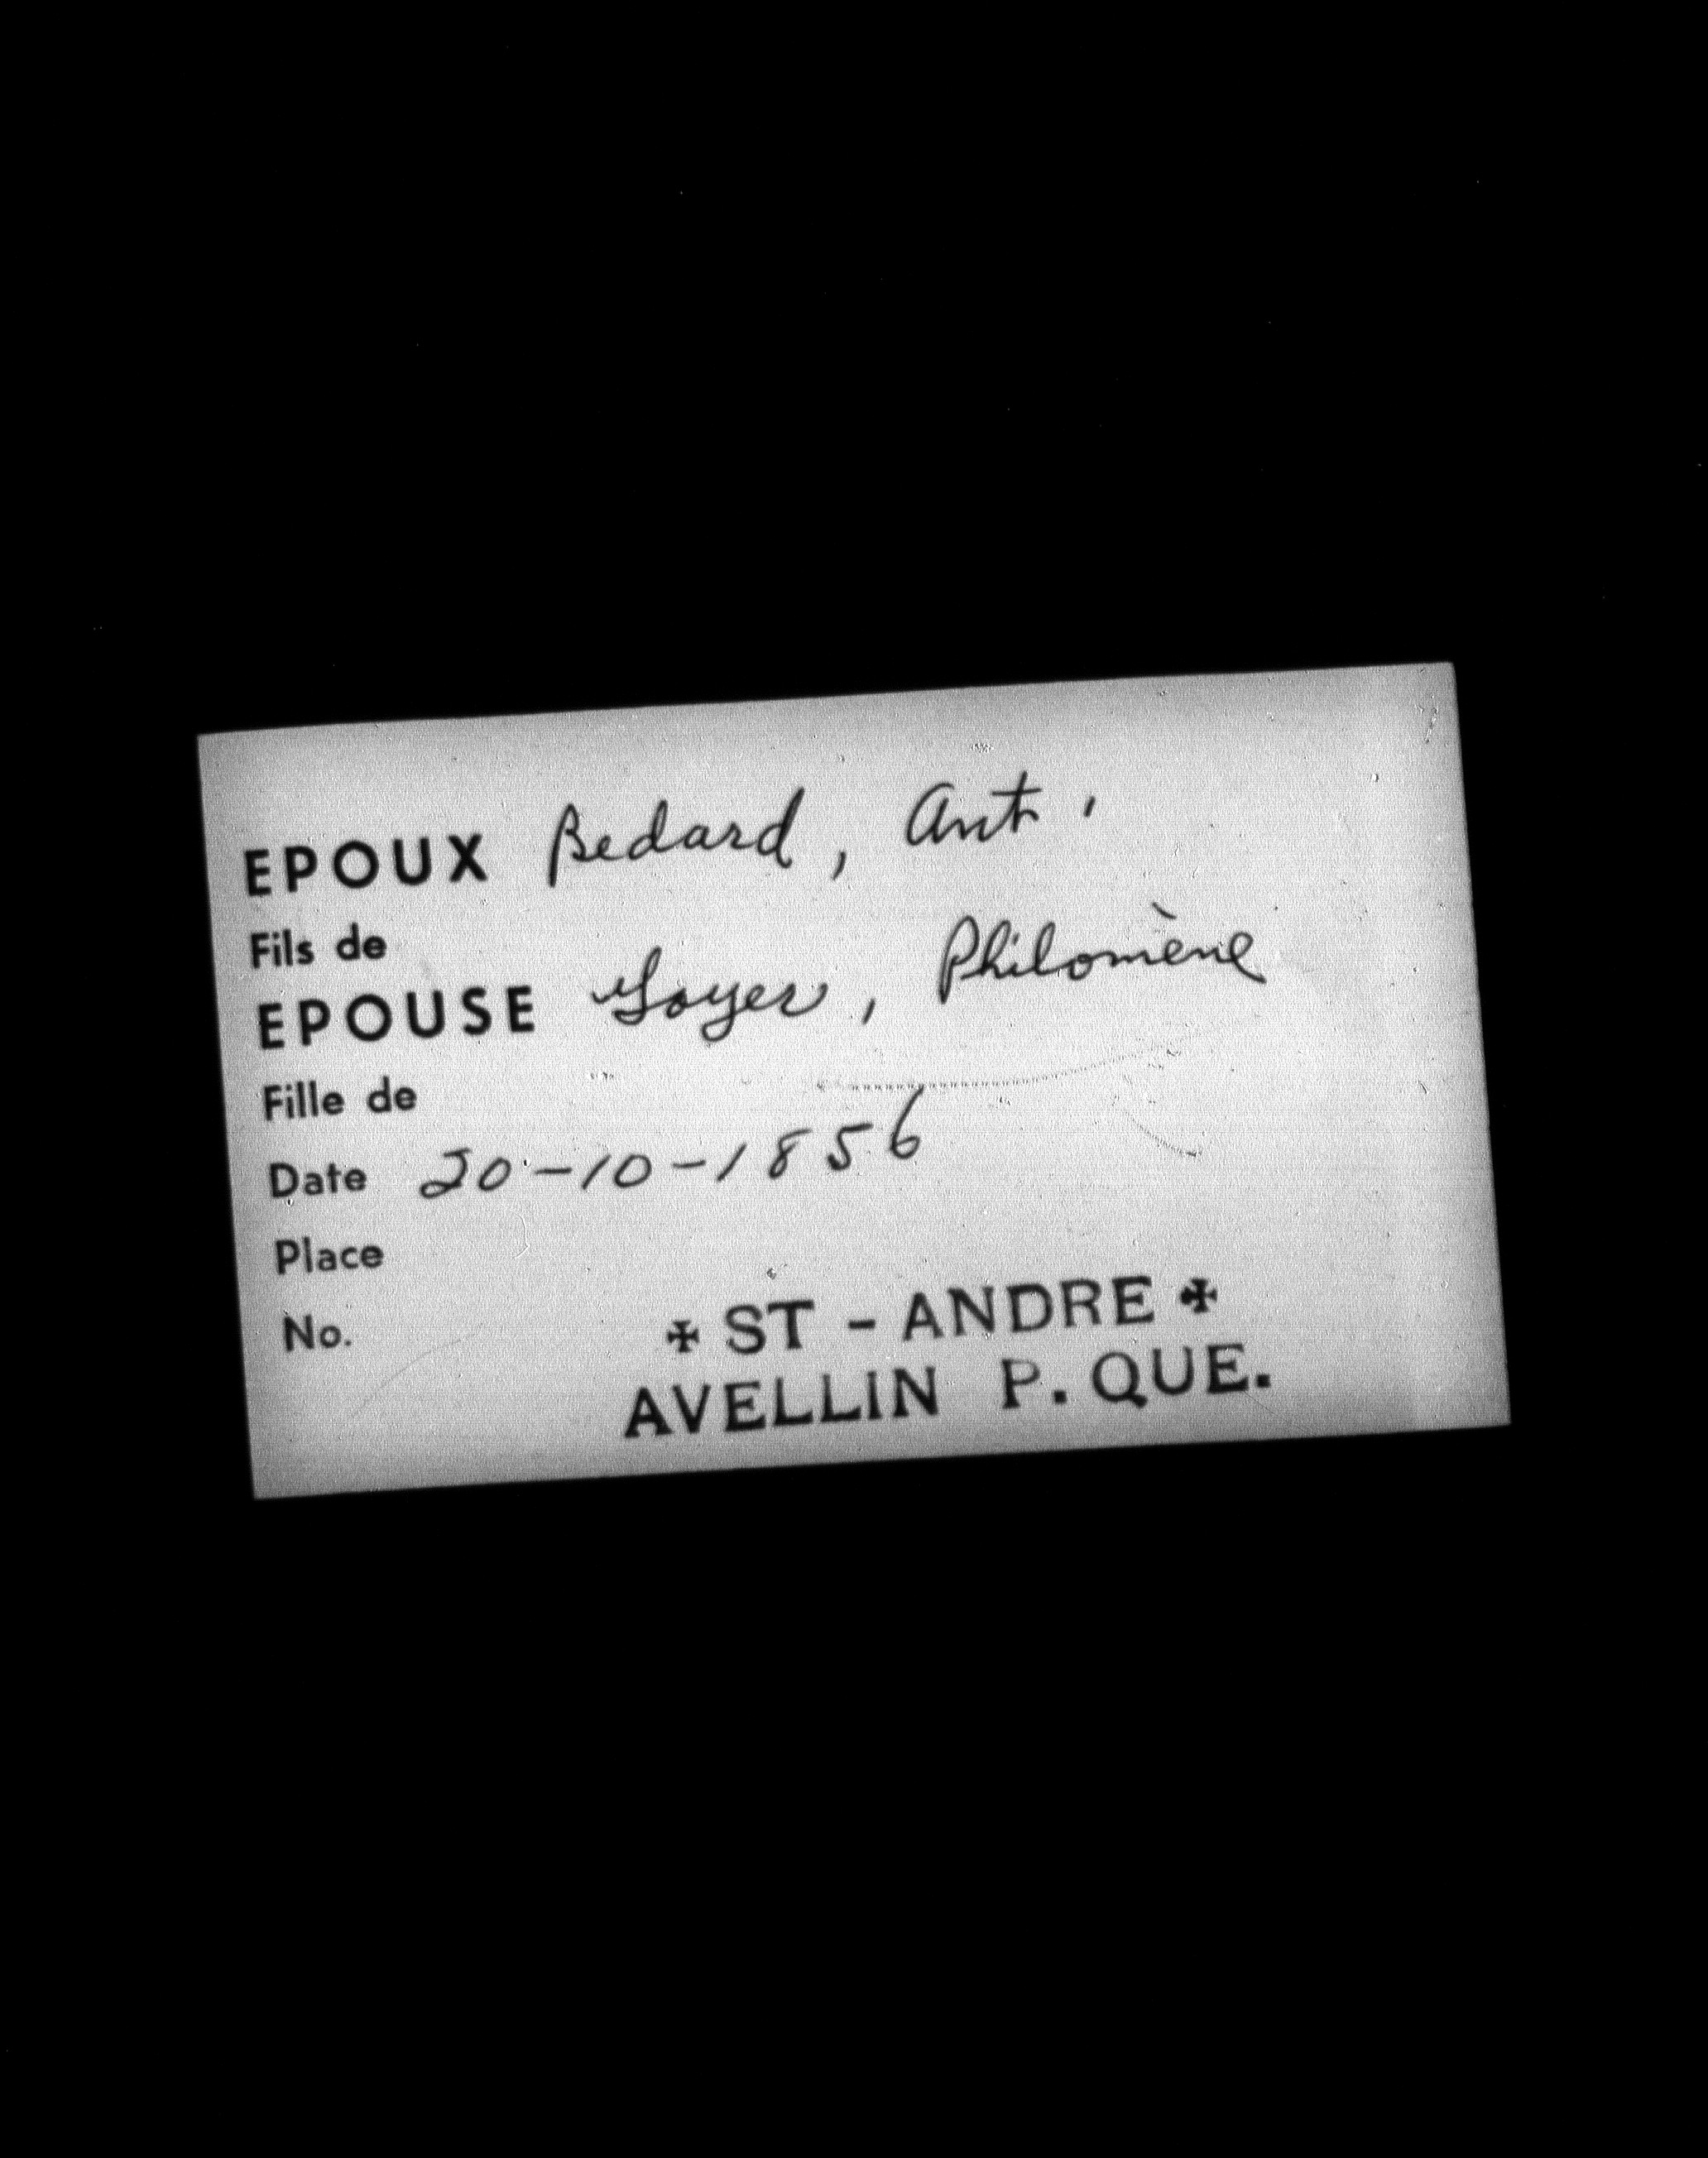 EPOUX Bedard, Ant.
Fils de
EPOUSE Goyer, Philomène
Fille de
Date 20-10-1856
Place
No.
✠ ST - ANDRE ✠
AVELLIN P. QUE.